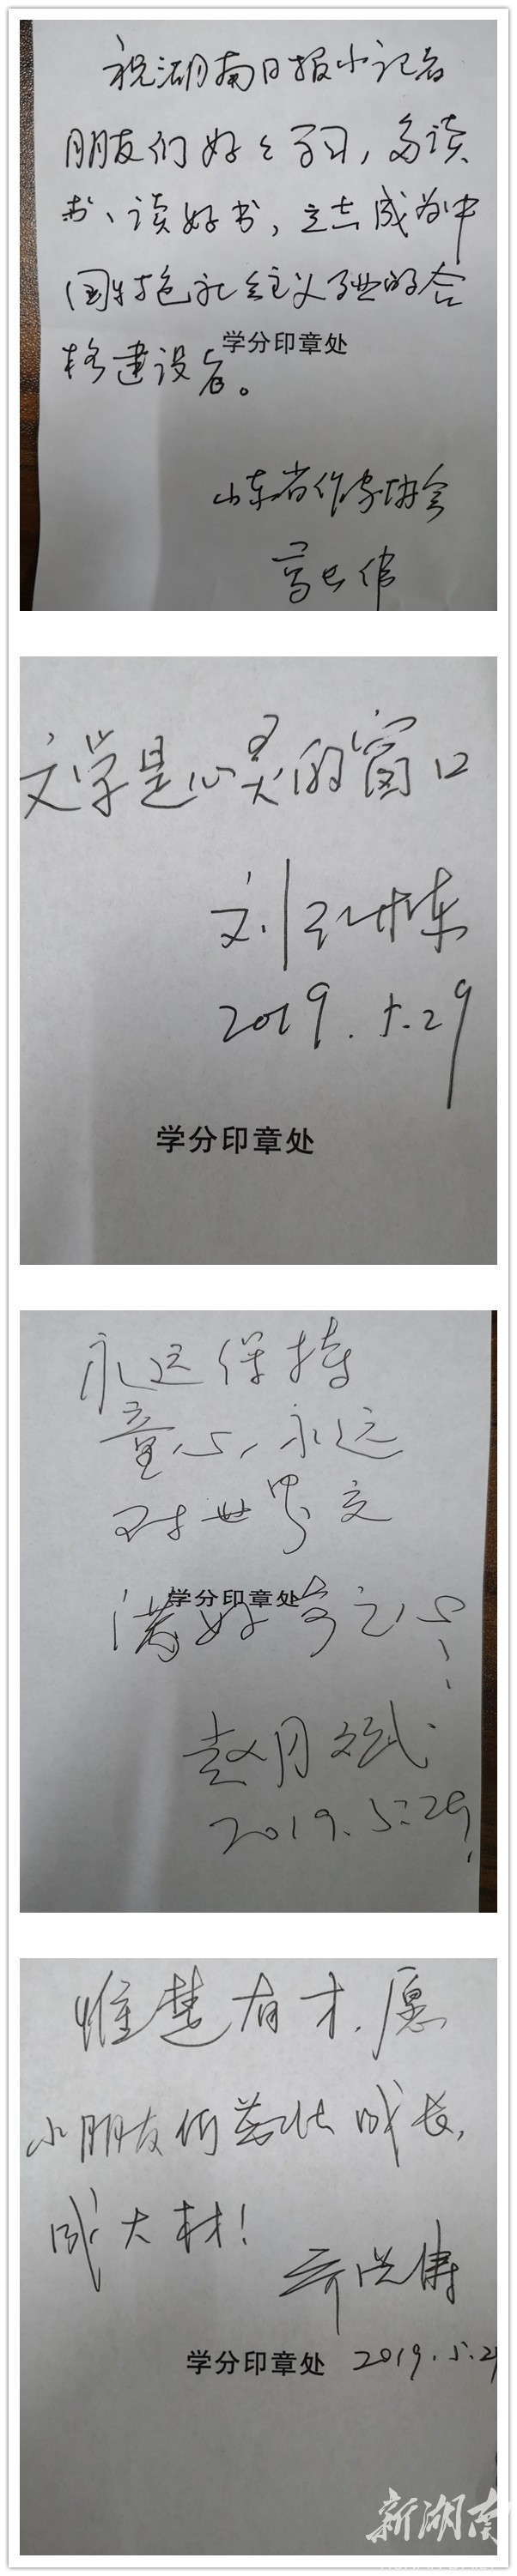 祝湖南日报小记者
朋友们好好学习，多读
书、读好书，立志成为中
国特色社会主义事业的合
学分印章处
格建设者。
山东省作家协会
文学是心灵的窗口
刘玉栋
2019.5.29
学分印章处
永远保持
童心，永远
对世界充
学分印章处
满好奇心！
赵月斌
2019.5.29
惟楚有才，愿
小朋友们茁壮成长，
成大材！
学分印章处 2019.5.29
新湖南